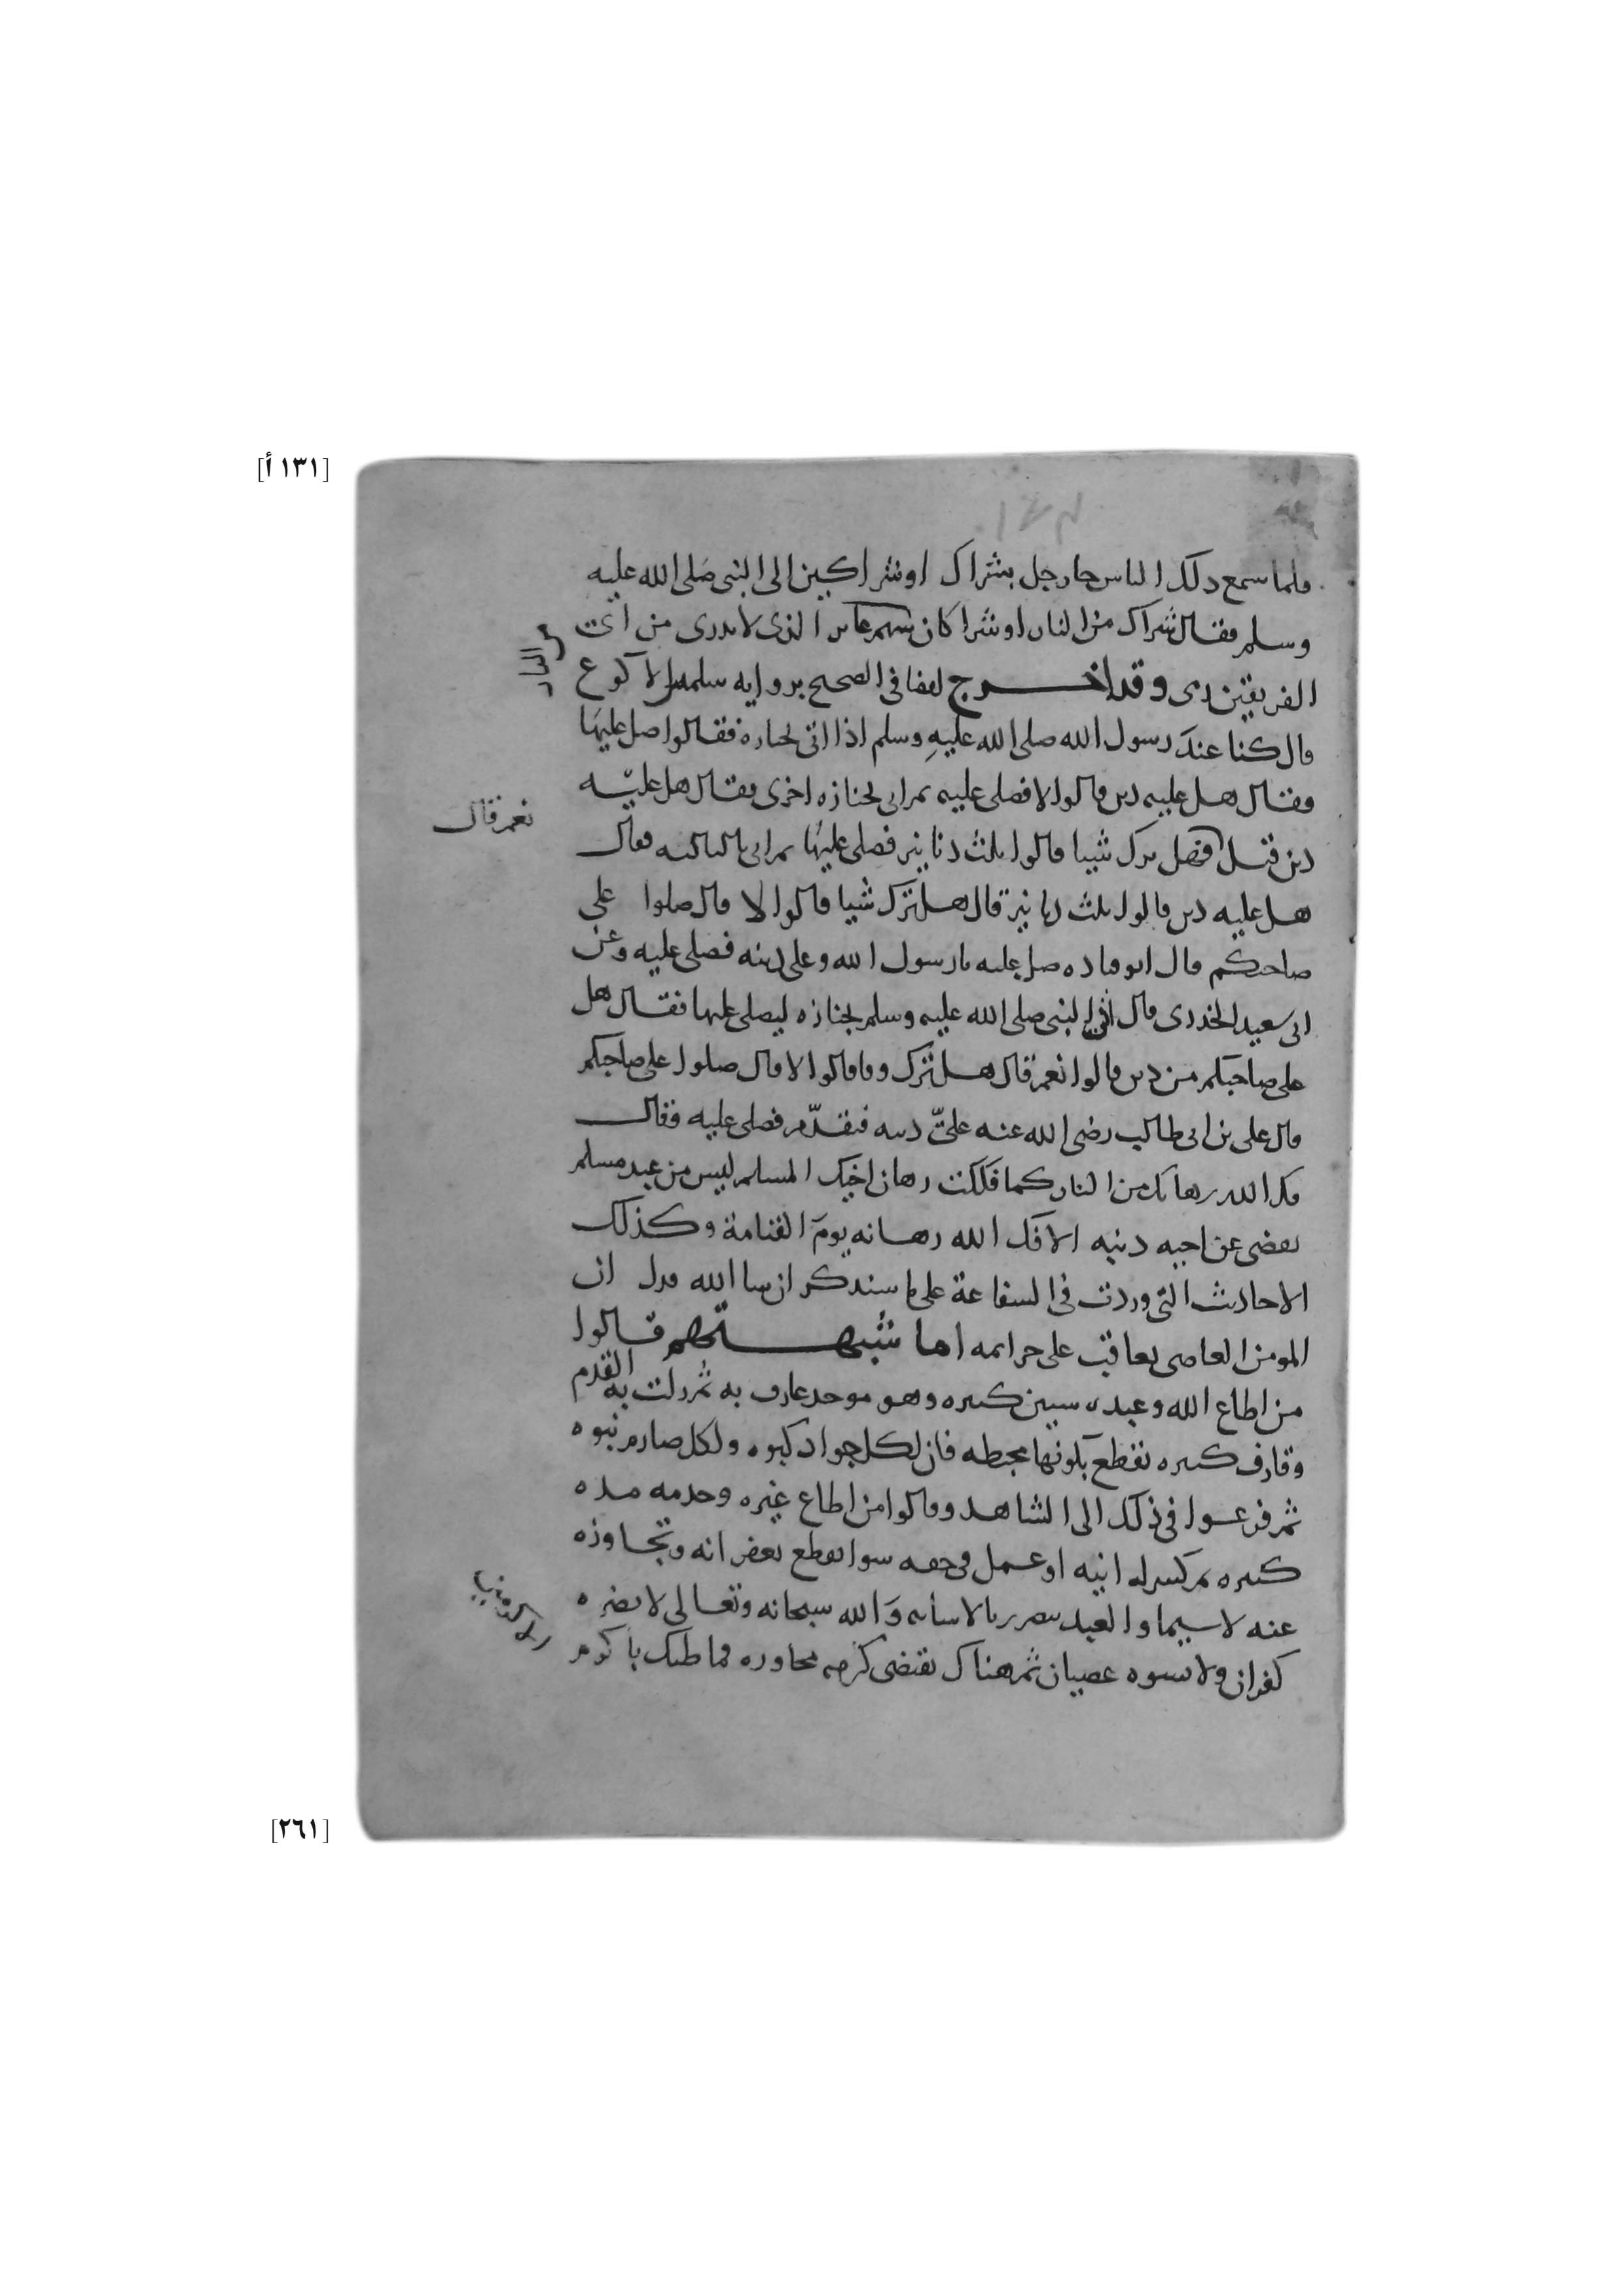 [١٣١ أ]
فلما سمع ذلك الناس جا رجل بشراك او شراكين الى النبي صَلى الله عليه
وسلم فقال شراك من النار او شراكان سهم عاىر الذي لا يدرى من اتى
من النار
الفريقين رمى وقد اخرج ايضا في الصحيح برواية سلمة بن الاكوع
قال كنا عندَ رسول الله صلى الله عليهِ وسلم اذا اتى بجنازه فقالوا صل عليهَا
فقال هل عليه دين قالوا لا فصلى عليه ثم اتى بجنازه اخرى فقال هل عليه
دين قيل فهل ترك شيا قالوا ثلث دنانير فصلى عليهَا ثم اتى بالثالثه فقال
نعم قال
هل عليه دين قالوا ثلث دنانير قال هل ترك شيا قالوا لا قال صلوا على
صاحبكم قال ابو قتاده صل عليه يا رسول الله وعلى دينه فصلى عليه وعن
ابى سعيد الخدرى قال اتى النبي صلى الله عليه وسلم بجنازه ليصلى عليها فقال هل
على صاحبكم من دين قالوا نعم قال هل ترك وفا قالوا لا قال صلوا على صاحبكم
قال على بن ابى طالب رضى الله عنه علىّ دينه فتقدّم فصلى عليه فقال
فك الله رهانك من النار كما فككت رهان اخيك المسلم ليس من عبد مسلم
يقضى عن اخيه دينه الا فك الله رهانه يومَ القيامة وكذلك
الاحاديث التى وردت في الشفاعة على ما سنذكر ان شا الله يدل ان
المومن العاصى يعاقب على جرايمه اما شبهتهم قالوا
من اطاع الله وعبده سبعين سنه وهو موحد عارف به ثم زلت به القدم
وقارف كبيره نقطع بكونها محبطه فان لكل جواد كبوه ولكل صارم نبوه
ثم فزعوا في ذلك الى الشاهد وقالوا من اطاع غيره وخدمه مده
كبيره ثم كسر له انيه او عمل في حقه سوا يقطع بغفرانه وتجاوزه
عنه لا سيما والعبد يتضرر بالاساءه وَالله سبحانه وتعالى لا يضره
كفران ولا يسوه عصيان ثم هناك يقتضى كرمه تجاوزه فما ظنك باكرم
[٢٦١]